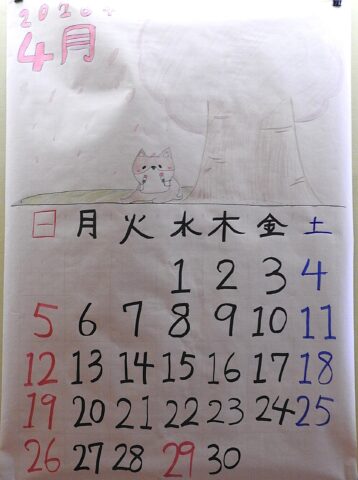 2020年
4月
日 月 火 水 木 金 土
1 2 3 4
5 6 7 8 9 10 11
12 13 14 15 16 17 18
19 20 21 22 23 24 25
26 27 28 29 30